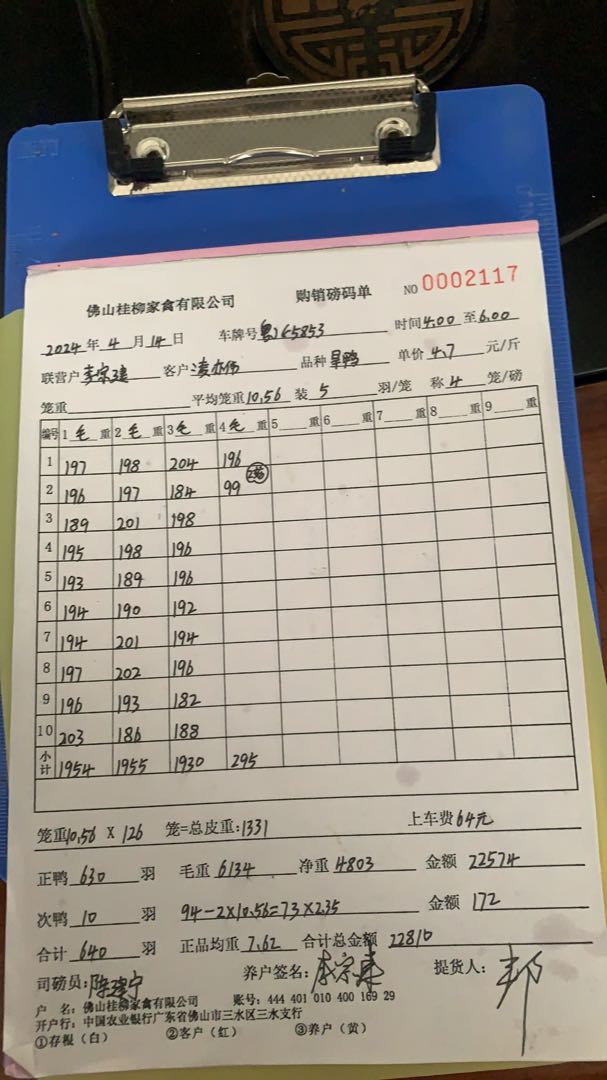 佛山桂柳家禽有限公司 购销磅码单 NO 0002117
2024年4月14日 车牌号 粤 65853 时间4:00至6:00
联营户 李宗建 客户 凌亦伟 品种 旱鸭 单价4.7元/斤
笼重 平均笼重10.56 装5羽/笼 称4笼/磅
编号 1毛重 2毛重 3毛重 4毛重 5重 6重 7重 8重 9重
1 197 198 204 196
2 196 197 184 99 2笼
3 189 201 198
4 195 198 196
5 193 189 196
6 194 190 192
7 194 201 194
8 197 202 196
9 196 193 182
10 203 186 188
小计 1954 1955 1930 295
笼重10.56 X 126 笼=总皮重:1331 上车费64元
正鸭 630 羽 毛重 6134 净重 4803 金额 22574
次鸭 10 羽 94-2×10.56=73×2.35 金额 172
合计 640 羽 正品均重 7.62 合计总金额 22810
司磅员:陈建宁 养户签名: 李宗 提货人:
户 名:佛山桂柳家禽有限公司 账号:444 401 010 400 169 29
开户行:中国农业银行广东省佛山市三水区三水支行
①存根(白) ②客户(红) ③养户(黄)